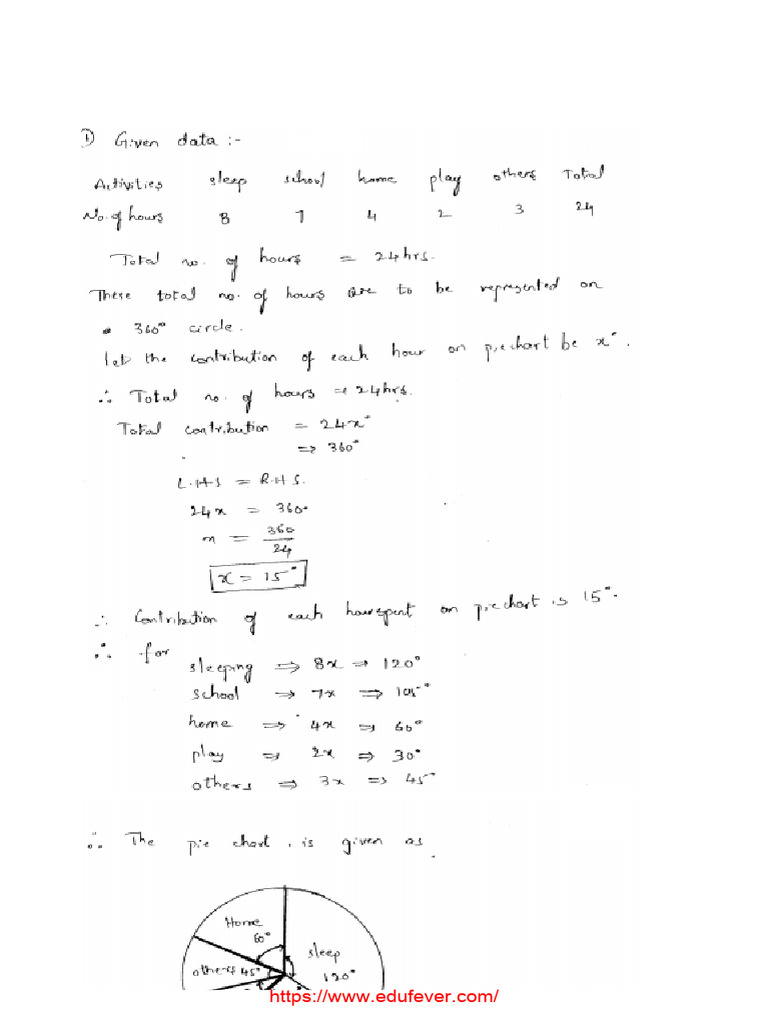 1) Given data :-
Activities sleep school home play others Total
No. of hours 8 7 4 2 3 24
Total no. of hours = 24hrs.
These total no. of hours are to be represented on
a 360° circle.
let the contribution of each hour on piechart be x°.
∴ Total no. of hours = 24hrs.
Total contribution = 24x°
⇒ 360°
L.H.S = R.H.S.
24x = 360°
x = 360/24
x = 15°
∴ Contribution of each hourspent on piechart is 15°.
∴ for
sleeping ⇒ 8x ⇒ 120°
school ⇒ 7x ⇒ 105°
home ⇒ 4x ⇒ 60°
play ⇒ 2x ⇒ 30°
others ⇒ 3x ⇒ 45°
∴ The pie chart is given as
Home
60°
sleep
others 45°
120°
https://www.edufever.com/